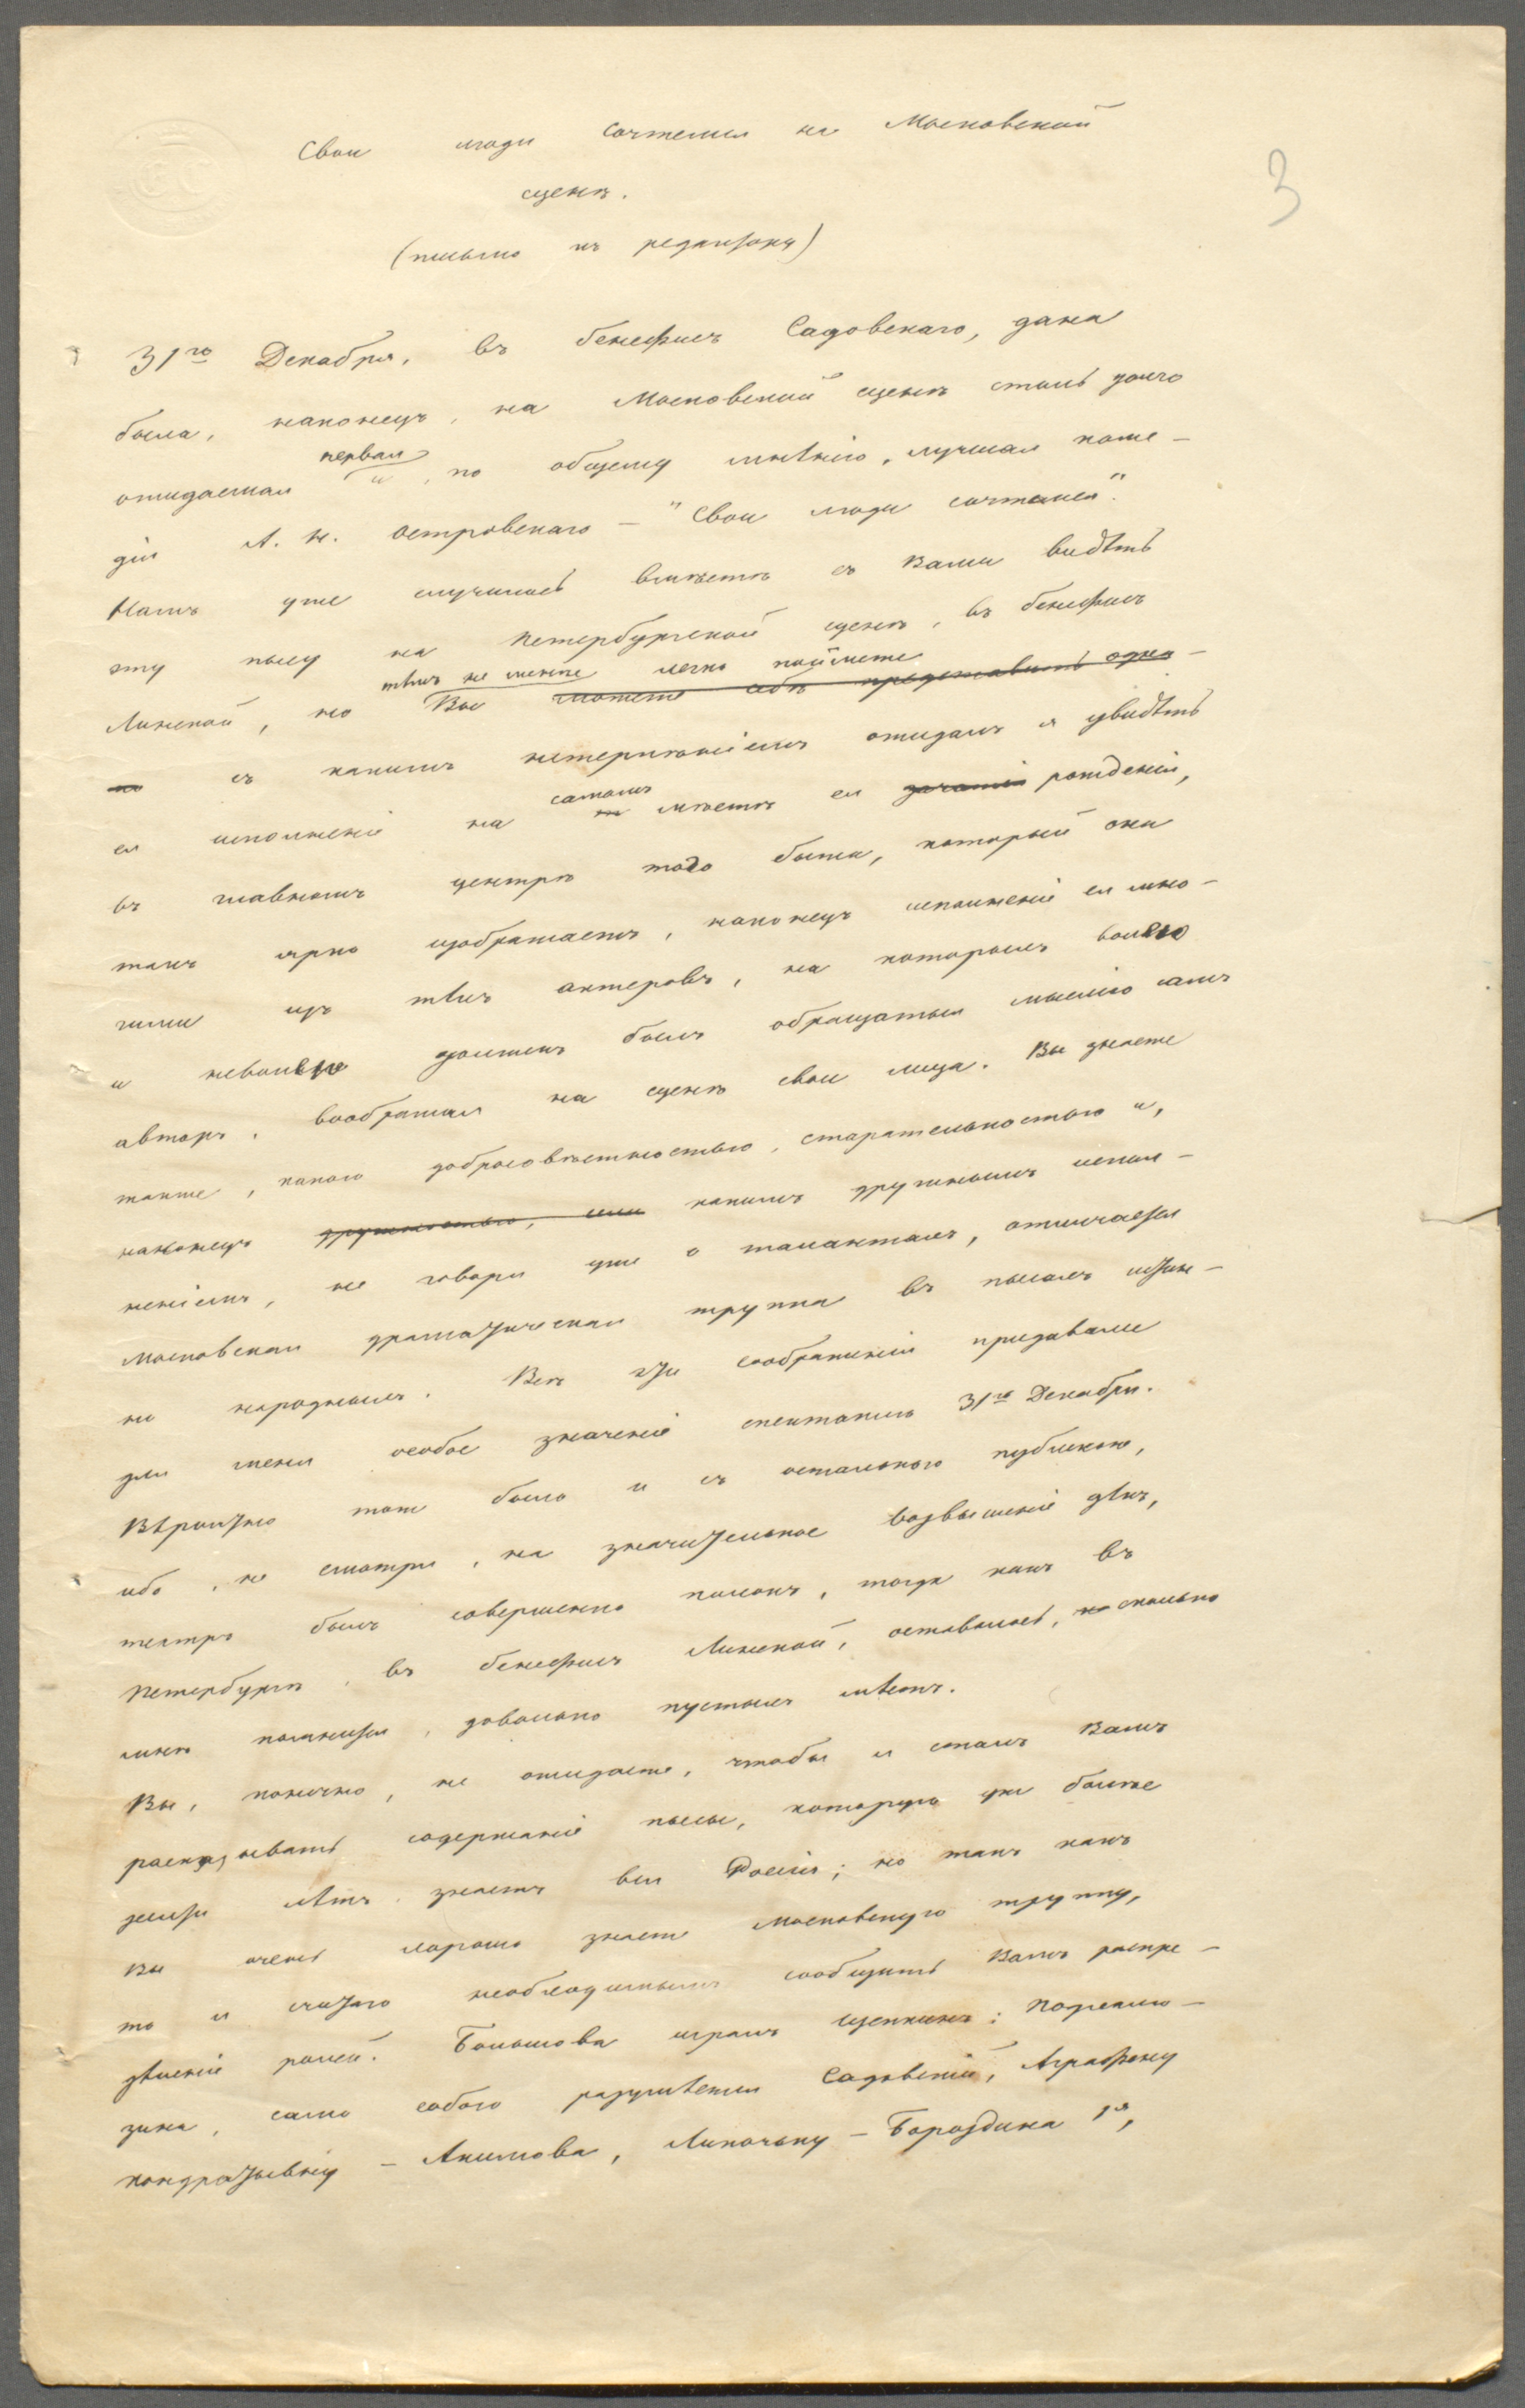 3
Свои люди сочтемся на Московской
сценѣ.
(письмо къ редактору)
31го Декабря, въ бенефисъ Садовскаго, дана
была, наконецъ, на Московской сценѣ столь долго
ожидаемая первая и, по общему мнѣнію, лучшая коме-
дія А. Н. Островскаго — "Свои люди сочтемся".
Намъ уже случилось вмѣстѣ съ Вами видѣть
эту пьесу на Петербургской сценѣ, въ бенефисъ
Линской, но Вы тѣмъ не менѣе легко поймете можете себѣ представить одна-
ко съ какимъ нетерпѣніемъ ожидалъ я увидѣть
ея исполненіе на самомъ мѣстѣ ея зачатія рожденія,
въ главномъ центрѣ того быта, который она
такъ ярко изображаетъ, наконецъ исполненіе ея мно-
гими изъ тѣхъ актеровъ, на которыхъ волею
и неволею долженъ былъ обращаться мыслію самъ
авторъ, воображая на сценѣ свои лица. Вы знаете
также, какою добросовѣстностью, старательностью и,
наконецъ дружностью, или какимъ дружнымъ испол-
неніемъ, не говоря уже о талантахъ, отличается
Московская драматическая труппа въ пьесахъ истин-
но народныхъ. Всѣ эти соображенія придавали
для меня особое значеніе спектаклю 31го Декабря.
Вѣроятно тоже было и съ остальною публикою,
ибо, не смотря, на значительное возвышеніе цѣнъ,
театръ былъ совершенно полонъ, тогда какъ въ
Петербургѣ, въ бенефисъ Линской, оставалось, сколько
мнѣ помнится, довольно пустыхъ мѣстъ.
Вы, конечно, не ожидаете, чтобы я сталъ Вамъ
разсказывать содержаніе пьесы, которую уже болѣе
десяти лѣтъ знаетъ вся Россія; но такъ какъ
Вы очень хорошо знаете Московскую труппу,
то я считаю необходимымъ сообщить Вамъ распре-
дѣленіе ролей. Большова игралъ Щепкинъ; Подхалю-
зина, само собою разумѣется Садовскій, Аграфену
Кондратьевну — Акимова, Липочку — Бороздина 1я,